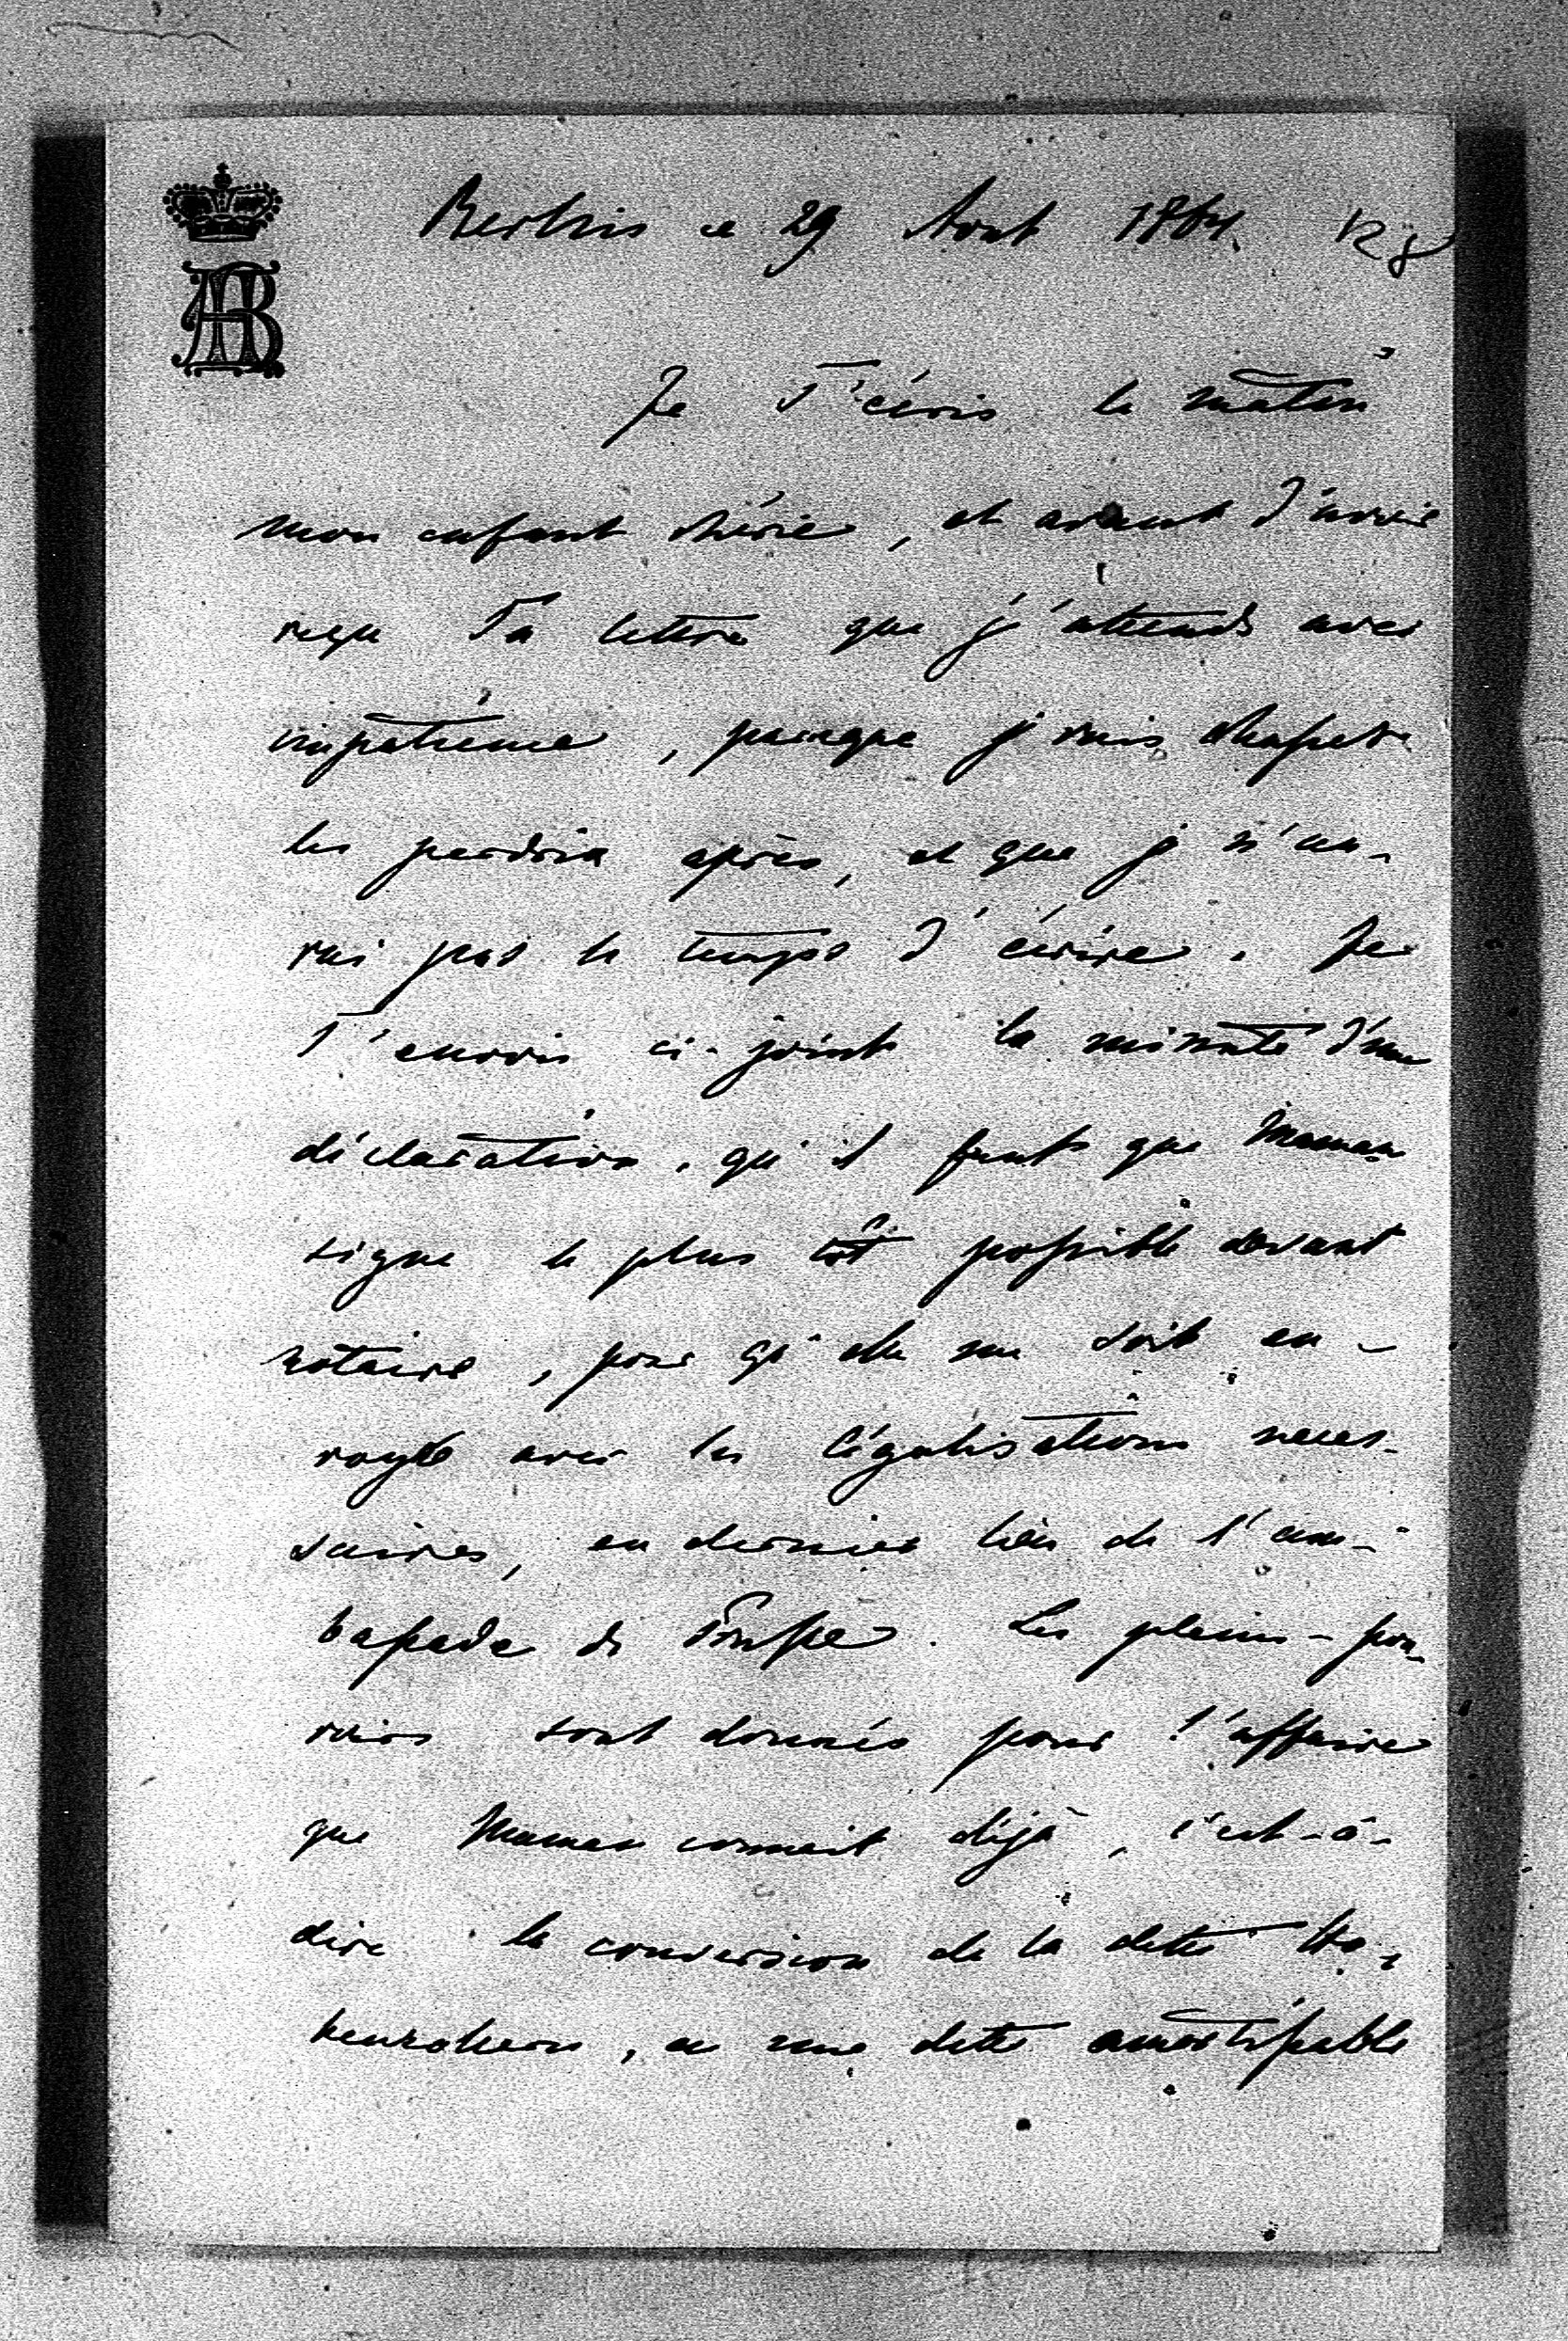 AB
Berlin ce 29 Aout 1864.
Je T'écris le matin
mon enfant chérie, et avant d'avoir
reçu Ta lettre que j'attends avec
impatience, puisque je vais chasser
les perdrix après, et que je n'au-
rai pas le temps d'écrire. Je
T'envois ci-joint la minute d'une
déclaration, qu'il faut que Maman
signe le plus tôt possible devant
notaire, pour qu'elle me soit en-
voyée avec les légalisations neces-
saires, en dernier lieu de l'am-
bassade de Prusse. Les pleins-pou-
voirs sont donnés pour l'affaire
que Maman connait déjà, c'est-à-
dire la conversion de la dette
en une dette amortissable